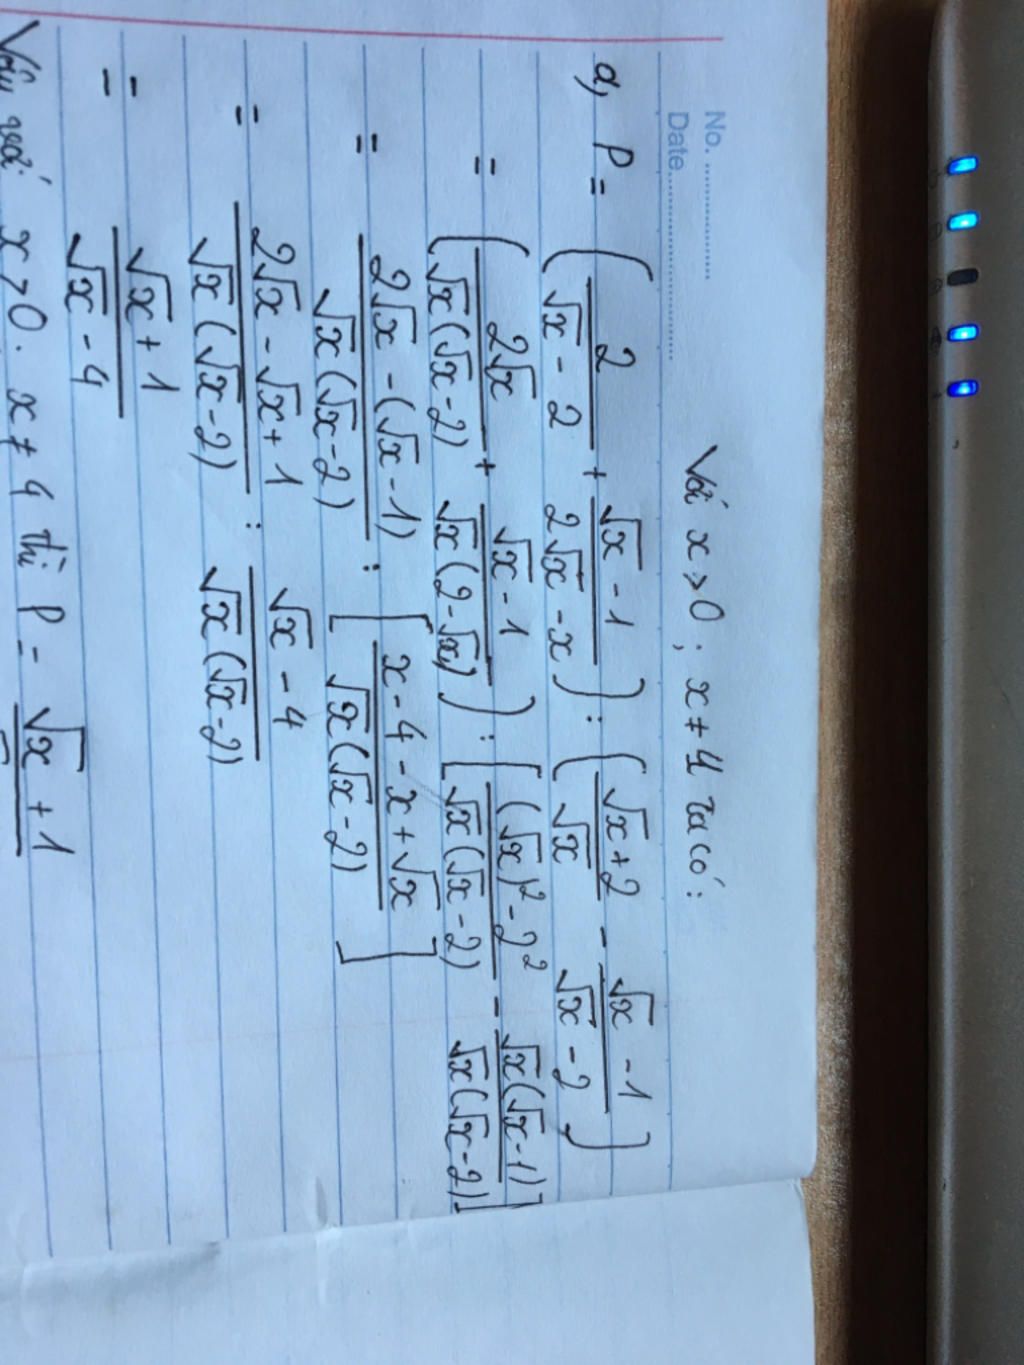 No. ....................
Date....................................
Với x > 0 ; x ≠ 4 ta có :
a, P = ( 2/(√x - 2) + (√x - 1)/(2√x - x) ) : ( (√x + 2)/√x - (√x - 1)/(√x - 2) )
= ( 2√x/(√x(√x - 2)) + (√x - 1)/(√x(2 - √x)) ) : [ ((√x)² - 2²)/(√x(√x - 2)) - √x(√x - 1)/(√x(√x - 2)) ]
= (2√x - (√x - 1))/(√x(√x - 2)) : [ (x - 4 - x + √x)/(√x(√x - 2)) ]
= (2√x - √x + 1)/(√x(√x - 2)) : (√x - 4)/(√x(√x - 2))
= (√x + 1)/(√x - 4)
Vậy với x > 0 . x ≠ 4 thì P = √x + 1